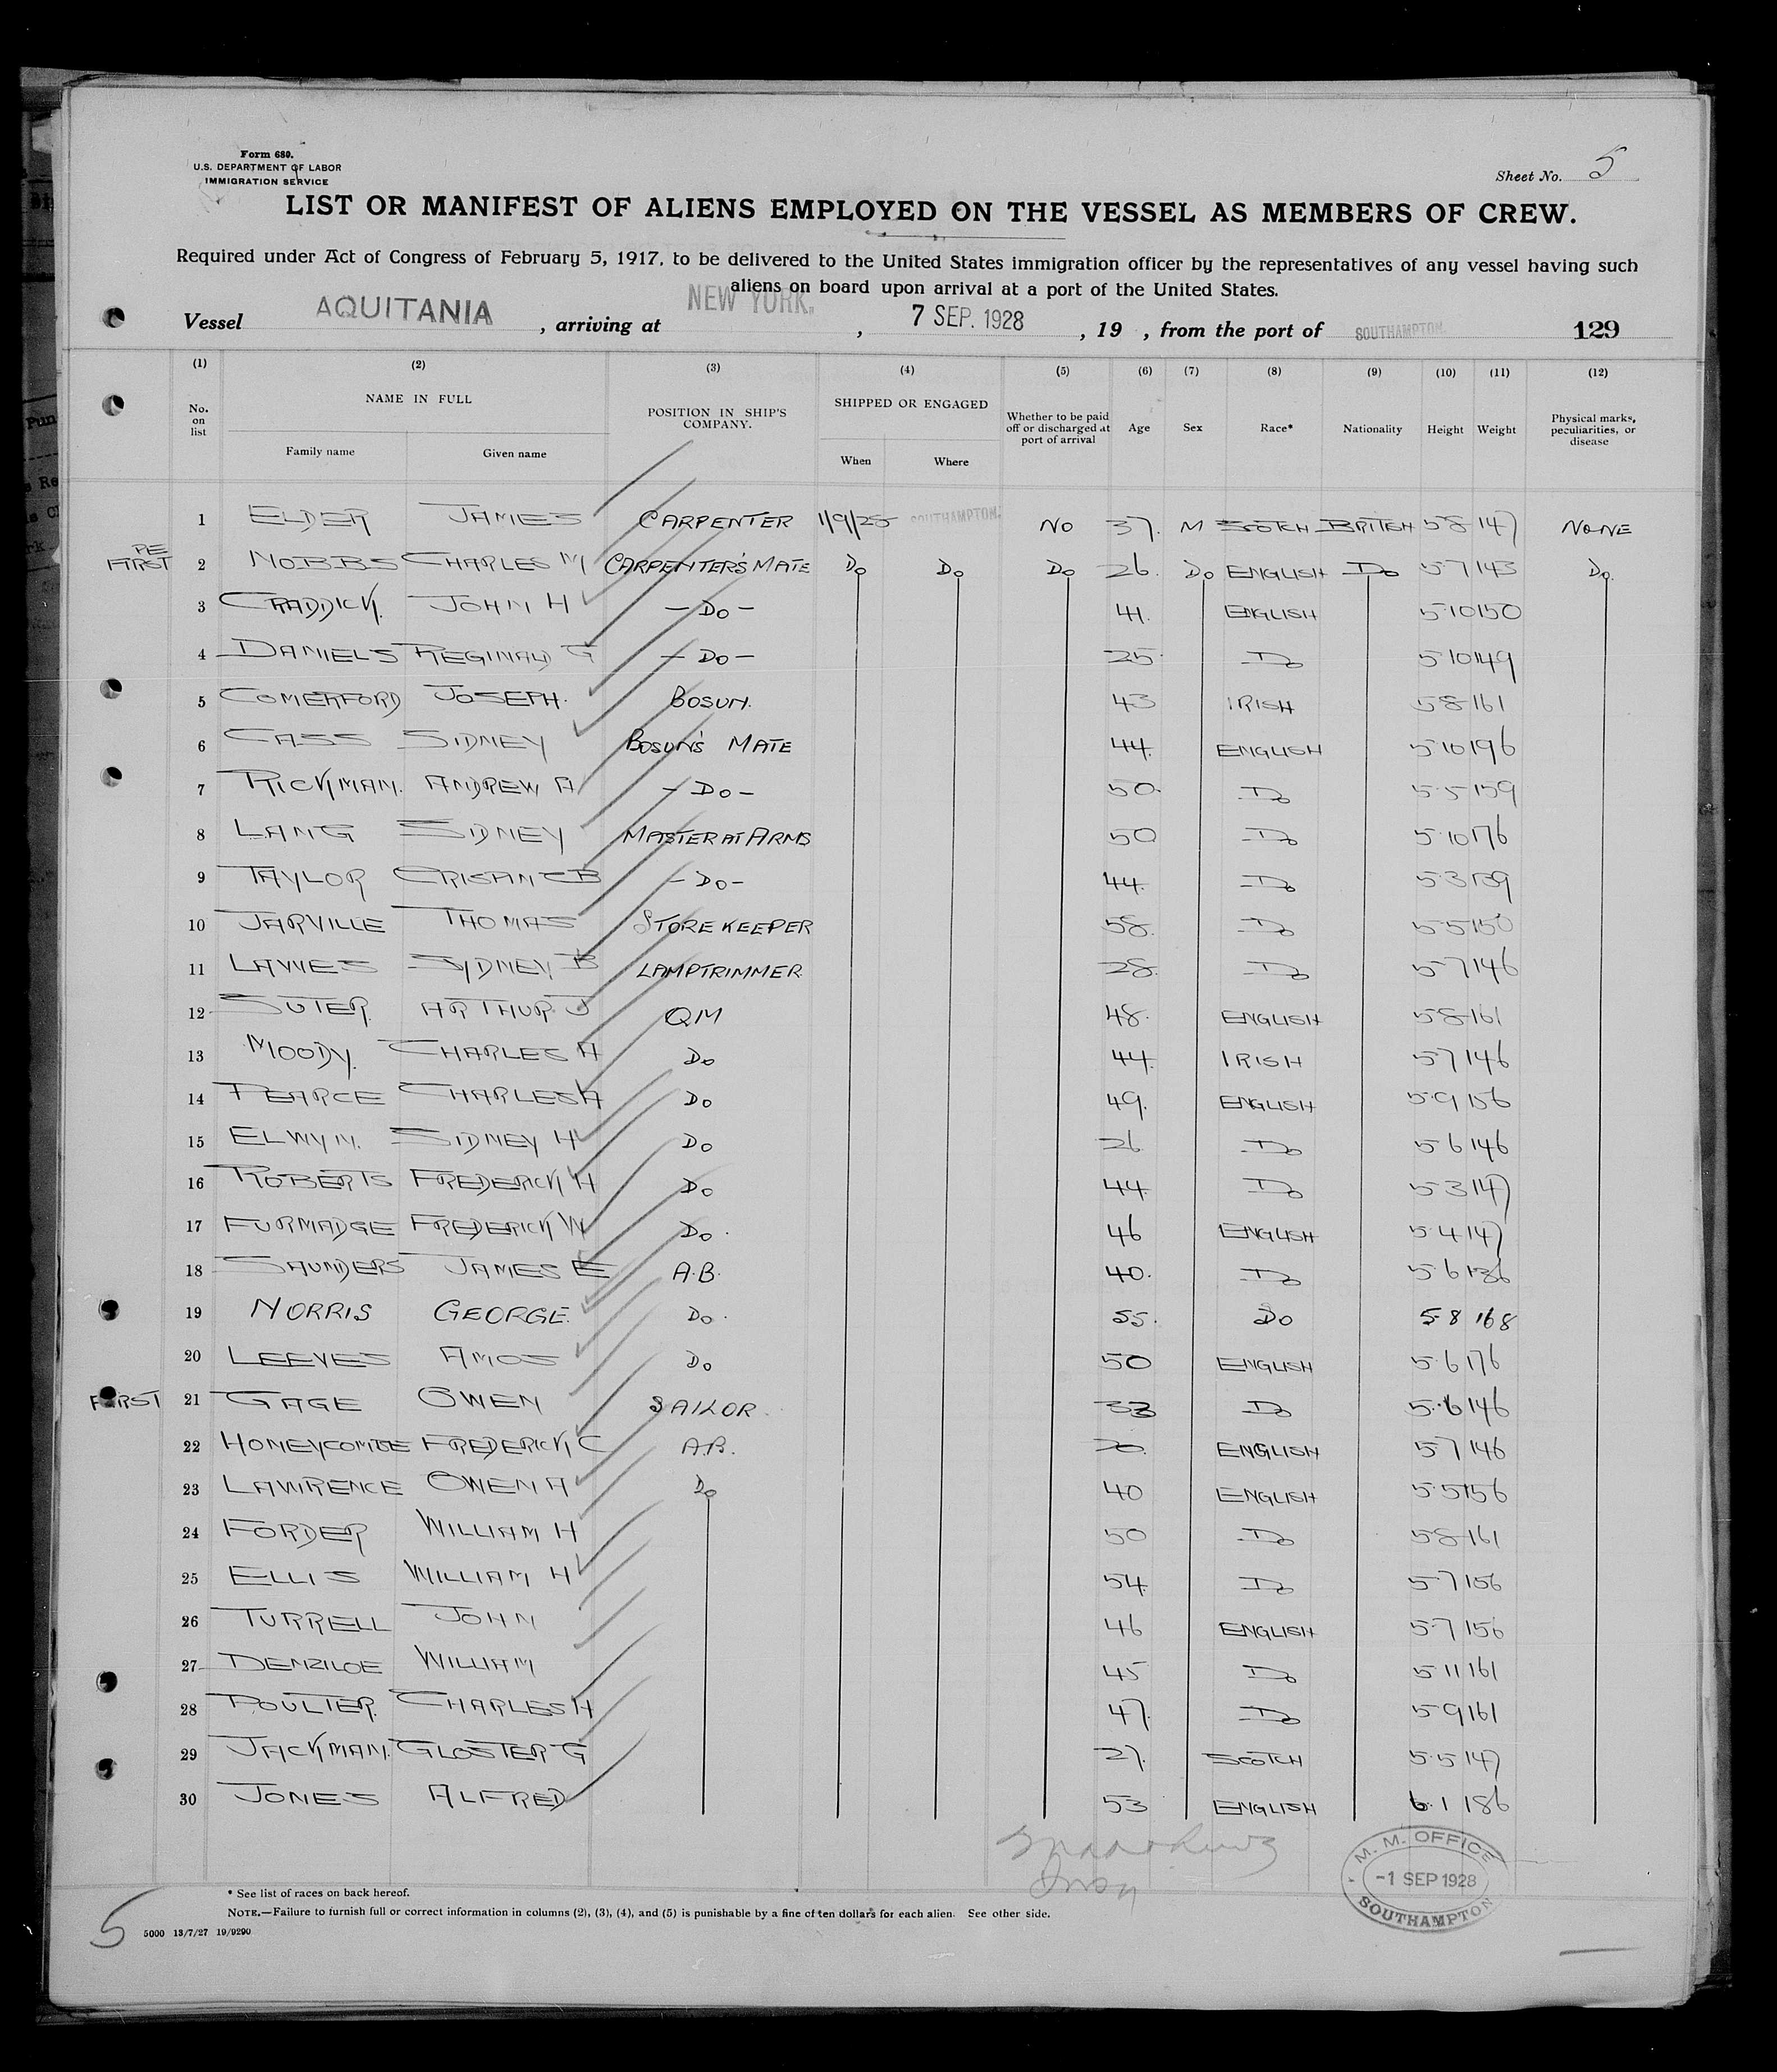 Form 680.
U.S. DEPARTMENT OF LABOR
IMMIGRATION SERVICE
Sheet No. 5
LIST OR MANIFEST OF ALIENS EMPLOYED ON THE VESSEL AS MEMBERS OF CREW.
Required under Act of Congress of February 5, 1917, to be delivered to the United States immigration officer by the representatives of any vessel having such
aliens on board upon arrival at a port of the United States.
Vessel AQUITANIA, arriving at NEW YORK, 7 SEP. 1928, 19 , from the port of SOUTHAMPTON. 129
(1) (2) (3) (4) (5) (6) (7) (8) (9) (10) (11) (12)
No. on list NAME IN FULL POSITION IN SHIP'S COMPANY. SHIPPED OR ENGAGED Whether to be paid off or discharged at port of arrival Age Sex Race* Nationality Height Weight Physical marks, peculiarities, or disease
Family name Given name When Where
1 ELDER JAMES CARPENTER 1/9/28 SOUTHAMPTON. NO 37. M SCOTCH BRITISH 5 8 147 NONE
PE FIRST 2 NOBBS CHARLES M CARPENTER'S MATE Do Do Do 26. Do ENGLISH Do 5 7 143 Do.
3 CRADDICK. JOHN H - Do - 41. ENGLISH 5 10 150
4 DANIELS REGINALD G - Do - 25. Do 5 10 149
5 COMERFORD JOSEPH. BOSUN. 43 IRISH 5 8 161
6 CASS SIDNEY BOSUN'S MATE 44. ENGLISH 5 10 196
7 RICKMAN. ANDREW A - Do - 50. Do 5 5 159
8 LANG SIDNEY MASTER AT ARMS 50 Do 5 10 176
9 TAYLOR - Do - 44. Do 5 3 139
10 JARVILLE THOMAS STOREKEEPER 58. Do 5 5 150
11 LAWES SYDNEY B LAMPTRIMMER 28. Do 5 7 146
12 SUTER. ARTHUR J QM 48. ENGLISH 5 8 161
13 MOODY. CHARLES H Do 44. IRISH 5 7 146
14 PEARCE CHARLES A Do 49. ENGLISH 5 9 156
15 ELWYN. SIDNEY H Do 26 Do 5 6 146
16 ROBERTS FREDERICK H Do 44. Do 5 3 147
17 FURMADGE FREDERICK W Do. 46 ENGLISH 5 4 147
18 SAUNDERS JAMES E A.B. 40. Do 5 6 136
19 NORRIS GEORGE. Do. 55. Do 5 8 168
20 LEEVES AMOS Do 50 ENGLISH 5 6 176
FIRST 21 GAGE OWEN SAILOR. 33 Do 5 6 146
22 HONEYCOMBE FREDERICK C A.B. ENGLISH 5 7 146
23 LAWRENCE OWEN A Do 40 ENGLISH 5 5 156
24 FORDER WILLIAM H 50 Do 5 8 161
25 ELLIS WILLIAM H 54. Do 5 7 156
26 TURRELL JOHN 46 ENGLISH 5 7 156
27 DENZILOE WILLIAM 45 Do 5 11 161
28 POULTER. CHARLES H 47. Do 5 9 161
29 JACKMAN. GLOSTER G 27. SCOTCH 5 5 147
30 JONES ALFRED 53 ENGLISH 6 1 186
M. M. OFFICE
-1 SEP 1928
SOUTHAMPTON
* See list of races on back hereof.
NOTE.—Failure to furnish full or correct information in columns (2), (3), (4), and (5) is punishable by a fine of ten dollars for each alien. See other side.
5 5000 13/7/27 19/9290